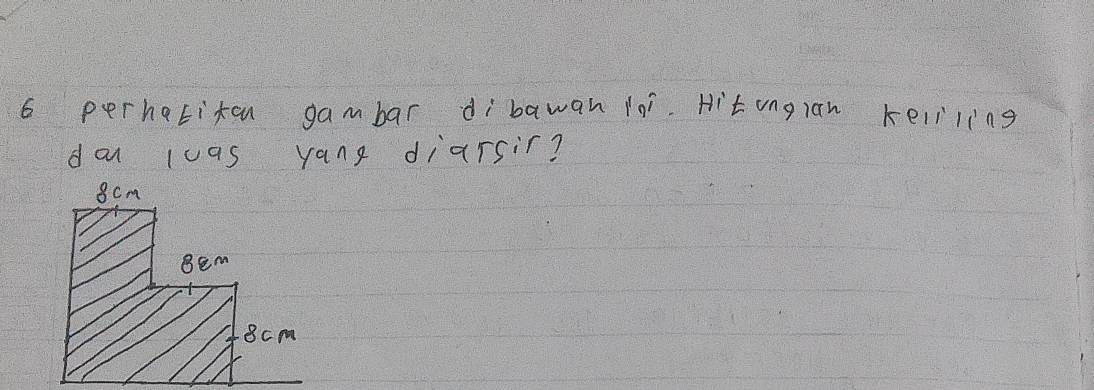 6 perhatikan gambar dibawah ini. Hitunglah keliling
dan luas yang diarsir?
8cm
8cm
8cm